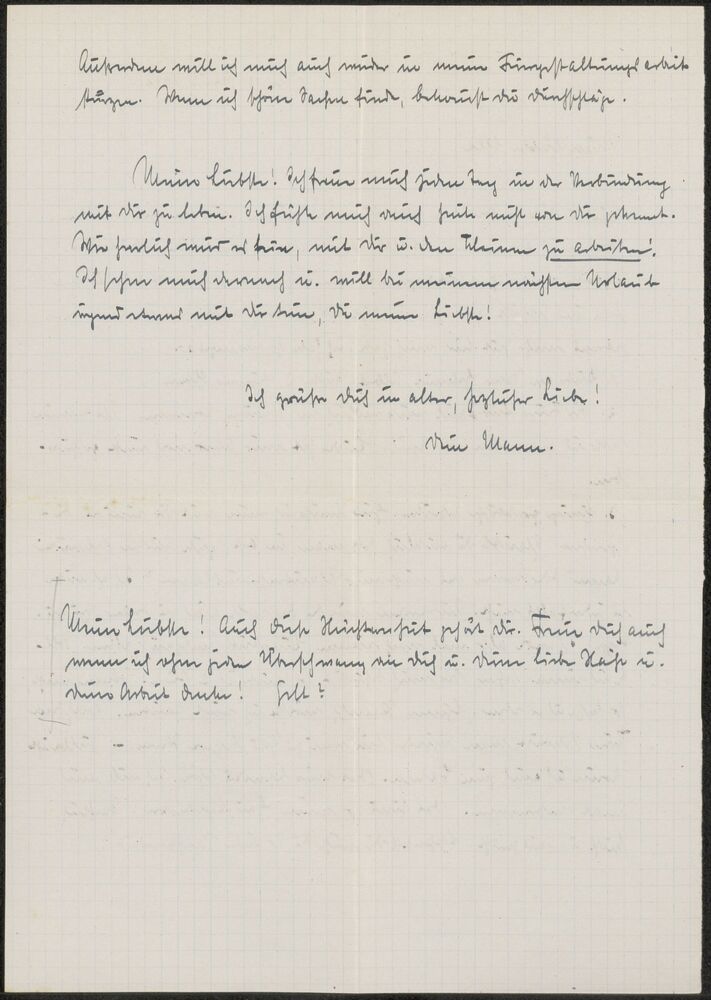 Außerdem will ich mich auch wieder in meine Feiergestaltungsarbeit
stürzen. Wenn ich schöne Sachen finde, bekommst du Durchschläge.
Meine Liebste! Ich freue mich jeden Tag in der Verbindung
mit dir zu leben. Ich fühle mich auch heute nicht von dir getrennt.
Wie herrlich muß es sein, mit dir u. den Kleinen zu arbeiten!
Ich sehne mich darnach u. will bei meinem nächsten Urlaub
irgend etwas mit dir tun, du meine Liebste!
Ich grüße dich in alter, herzlicher Liebe!
dein Mann.
Meine Liebste! Auch diese gehört dir. Freue dich auch
wenn ich ohne jeden Überschwang an dich u. deine liebe u.
deine Arbeit denke! Gelt?